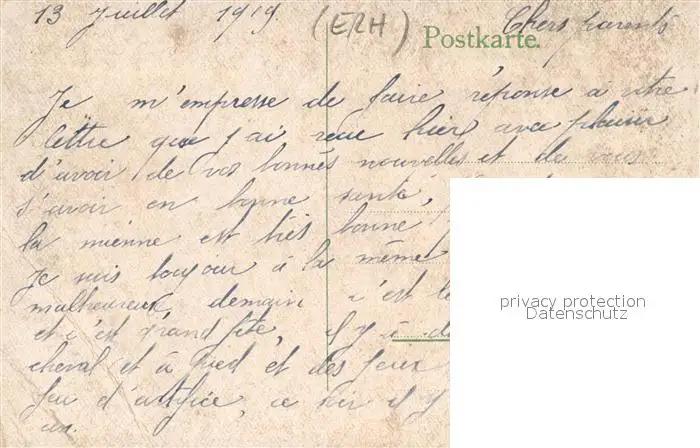 13 Juillet 1919. (ERH) Chers parents
Postkarte.
Je m'empresse de faire réponse à votre
lettre que j'ai reçue hier avec plaisir
d'avoir de vos bonnes nouvelles et de vous
s'avoir en bonne santé,
la mienne est très bonne
Je suis toujour à la même
malheureux, demain c'est le
et c'est grand fête, il y à de
cheval et à pied et des jeux
feu d'artifice, ce soir il y
un.
privacy protection
Datenschutz